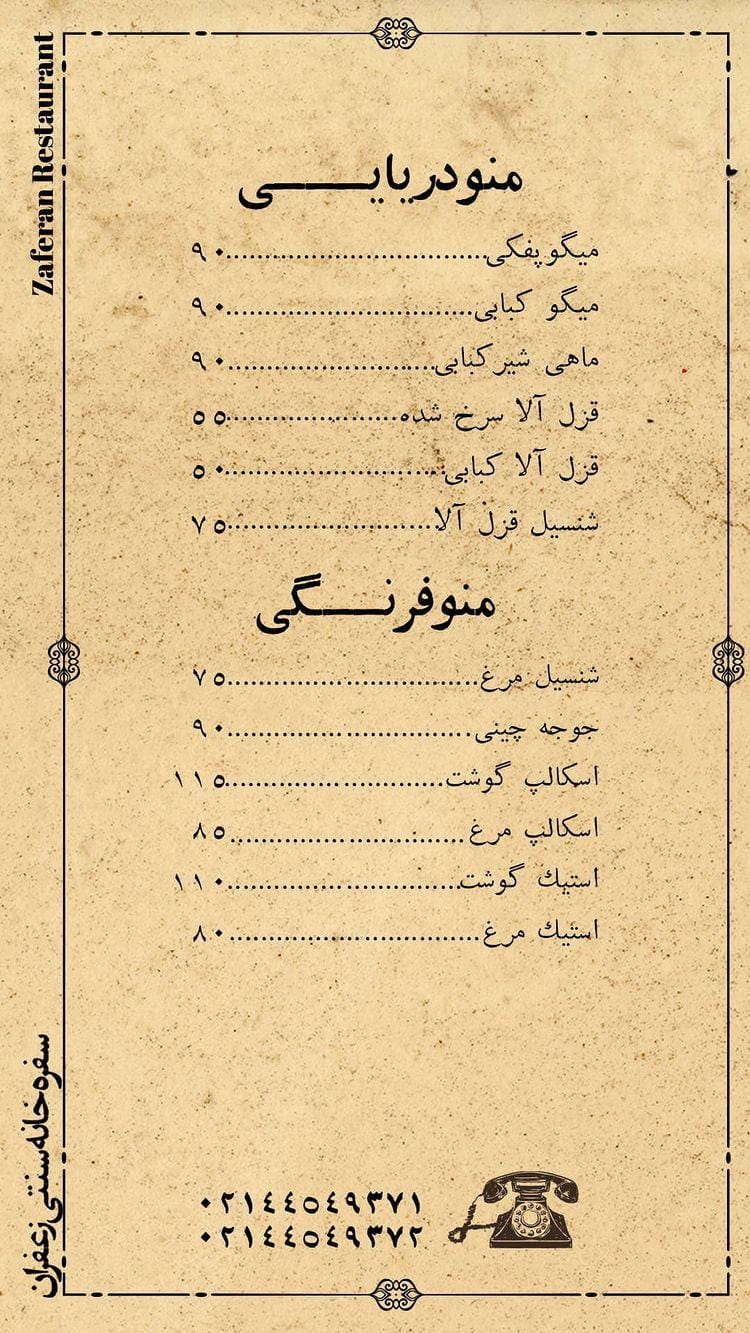 Zaferan Restaurant
منو دریایی
میگو پفکی..........۹۰
میگو کبابی..........۹۰
ماهی شیر کبابی..........۹۰
قزل آلا سرخ شده..........۵۵
قزل آلا کبابی..........۵۰
شنسیل قزل آلا..........۷۵
منو فرنگی
شنسیل مرغ..........۷۵
جوجه چینی..........۹۰
اسکالپ گوشت..........۱۱۵
اسکالپ مرغ..........۸۵
استیك گوشت..........۱۱۰
استیك مرغ..........۸۰
سفره خانه سنتی زعفران
۰۲۱٤٤٥٤۹۳۷۱
۰۲۱٤٤٥٤۹۳۷۲